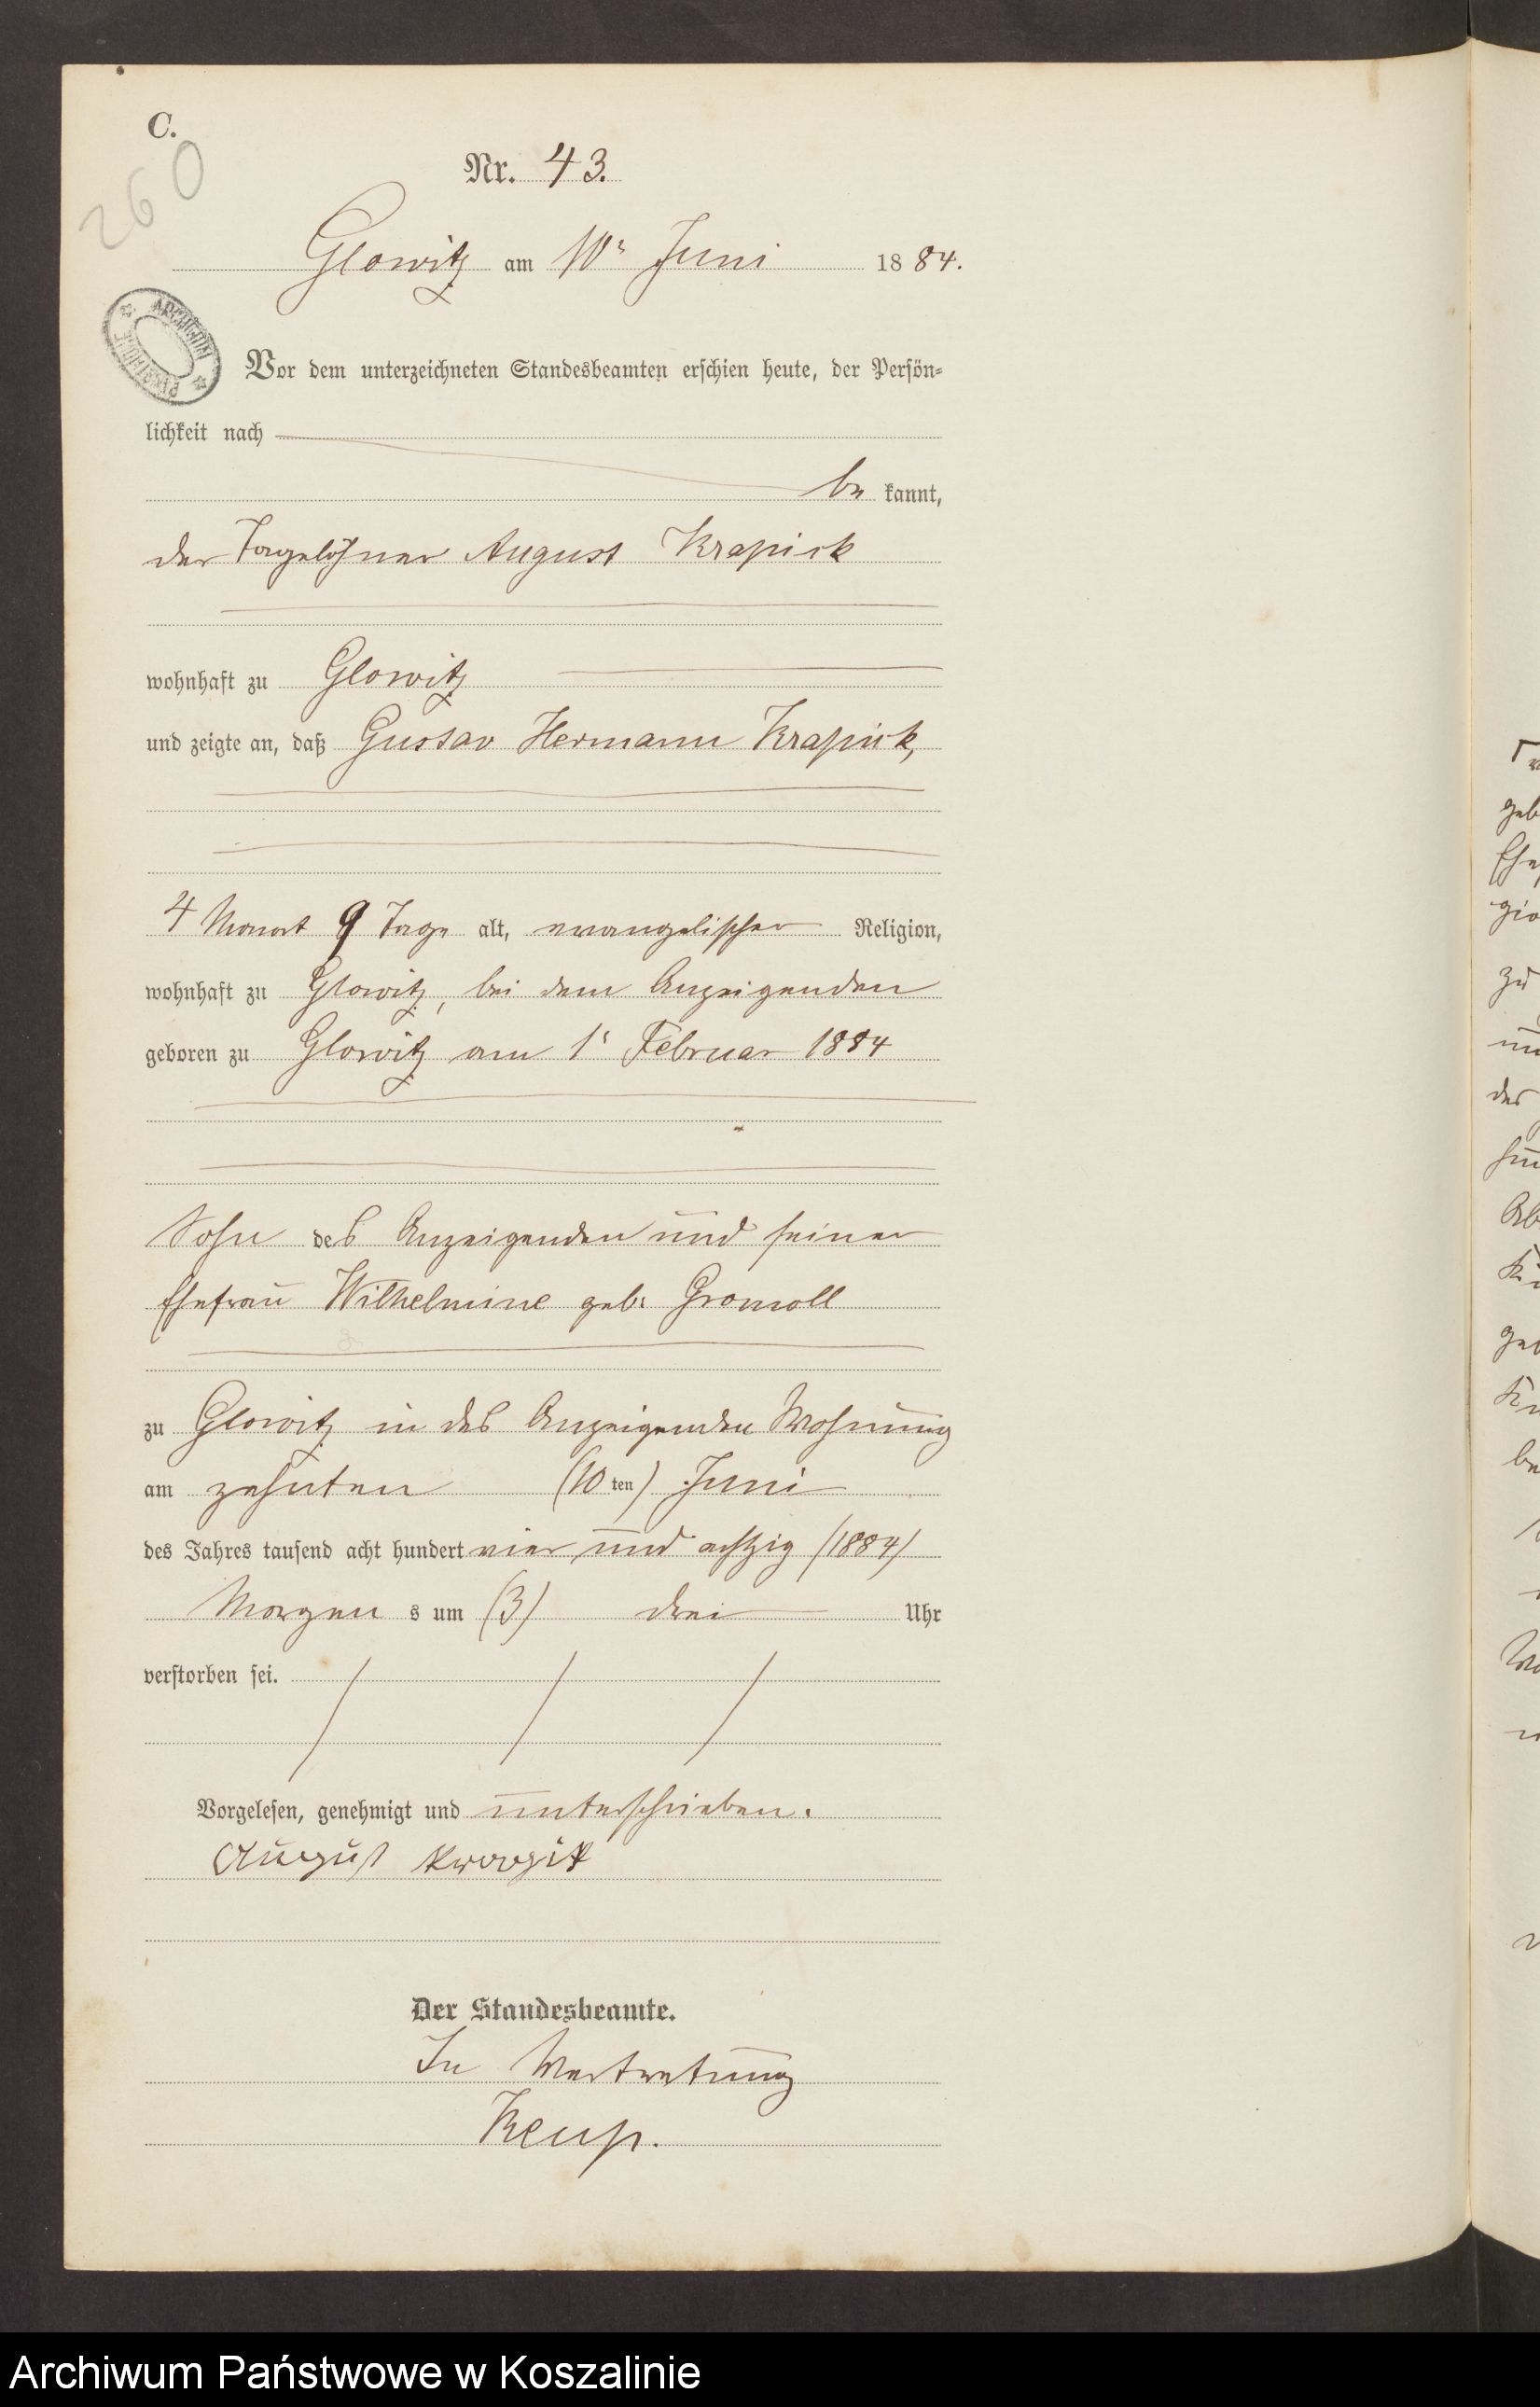 C.
260
Nr. 43.
Glowitz am 10t Juni 1884.
ARCHIWUM PAŃSTWOWE
Vor dem unterzeichneten Standesbeamten erschien heute, der Persön-
lichkeit nach
be kannt,
der Tagelöhner August Krapick
wohnhaft zu Glowitz
und zeigte an, daß Gustav Hermann Krapick,
4 Monat 9 Tage alt, evangelischer Religion,
wohnhaft zu Glowitz, bei dem Anzeigenden
geboren zu Glowitz am 1t Februar 1884
Sohn des Anzeigenden und seiner
Ehefrau Wilhelmine geb: Gromoll
zu Glowitz in des Anzeigenden Wohnung
am zehnten (10 ten) Juni
des Jahres tausend acht hundert vier und achtzig /1884/
Morgen s um (3) drei Uhr
verstorben sei.
Vorgelesen, genehmigt und unterschrieben.
August
Der Standesbeamte.
In Vertretung
Keup.
geb
zu
der
be
Archiwum Państwowe w Koszalinie